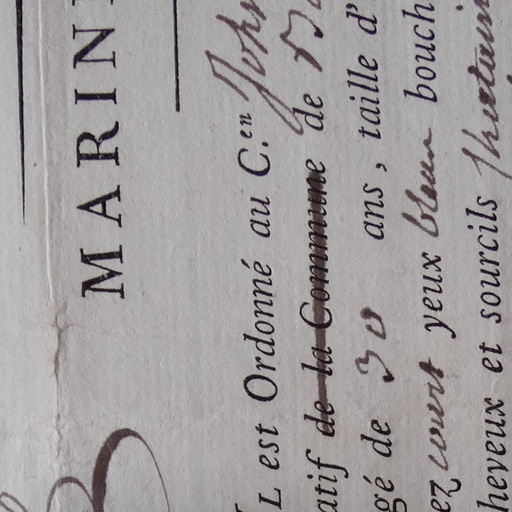 MARIN
L est Ordonné au C.en John
atif de la Commune de
gé de 30 ans, taille d'
ez court yeux bleux bouch
heveux et sourcils